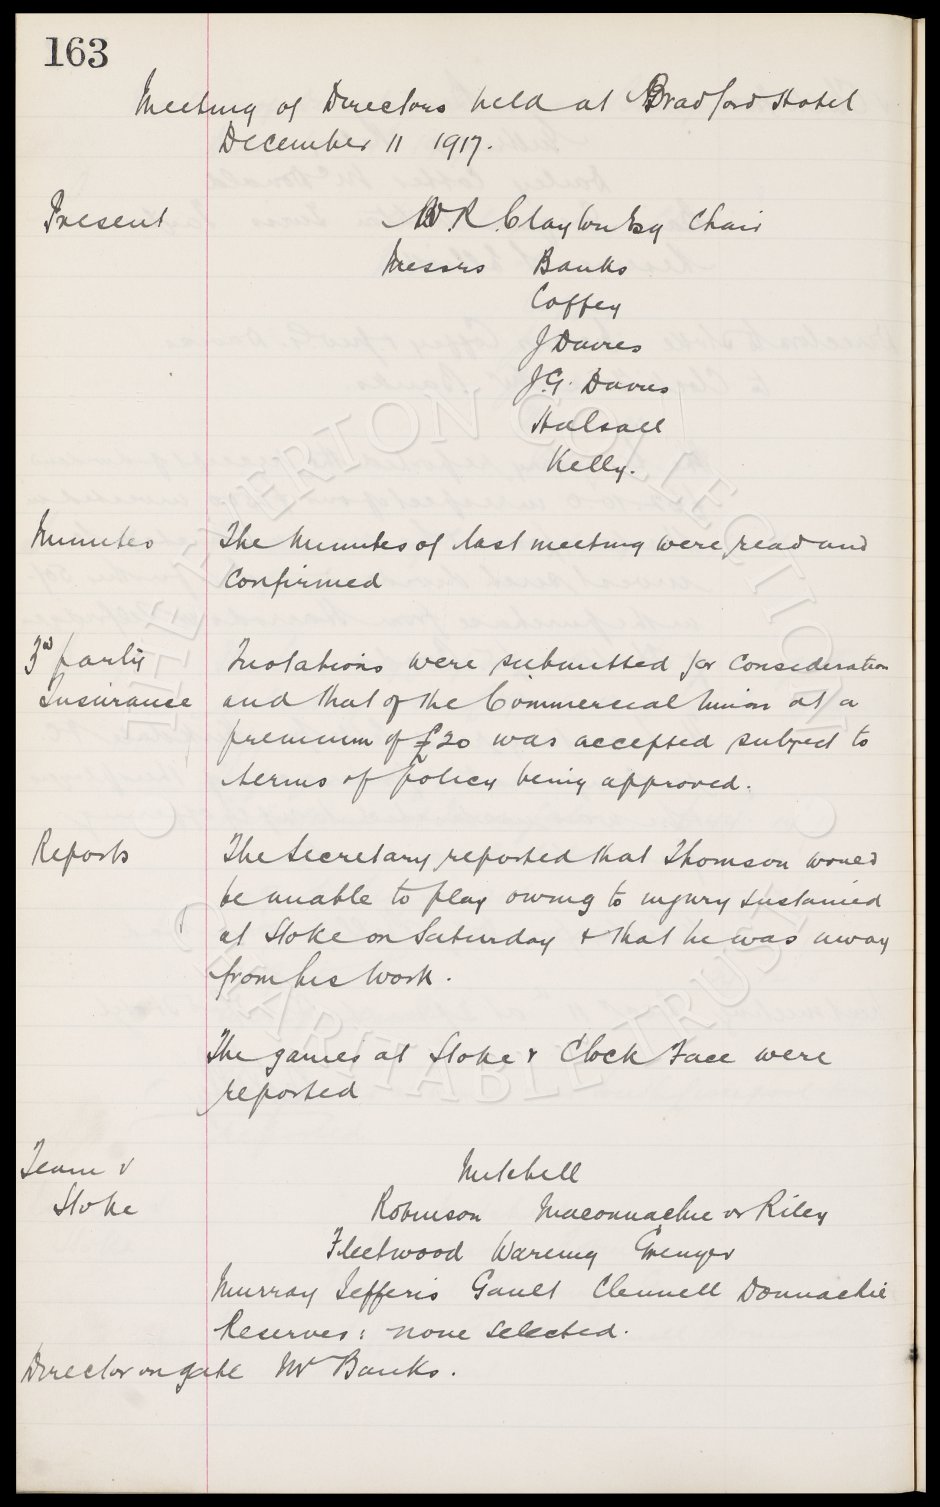 163
Meeting of Directors held at Bradford Hotel
December 11 1917.
Present W.R. Clayton Esq Chair
Messrs Banks
Coffey
J Davies
J.G. Davies
Halsall
Kelly.
Minutes The Minutes of last meeting were read and
confirmed
3rd party Quotations were submitted for consideration
Insurance and that of the Commercial Union at a
premium of £20 was accepted subject to
terms of policy being approved.
Reports The Secretary reported that Thomson would
be unable to play owing to injury sustained
at Stoke on Saturday & that he was away
from his work.
The games at Stoke & Clock Face were
reported
Team v Mitchell
Stoke Robinson Maconnachie or Riley
Fleetwood Wareing Grenyer
Murray Jefferis Gault Clennell Donnachie
Reserves: none selected.
Director on gate Mr Banks.
THE EVERTON COLLECTION
CHARITABLE TRUST